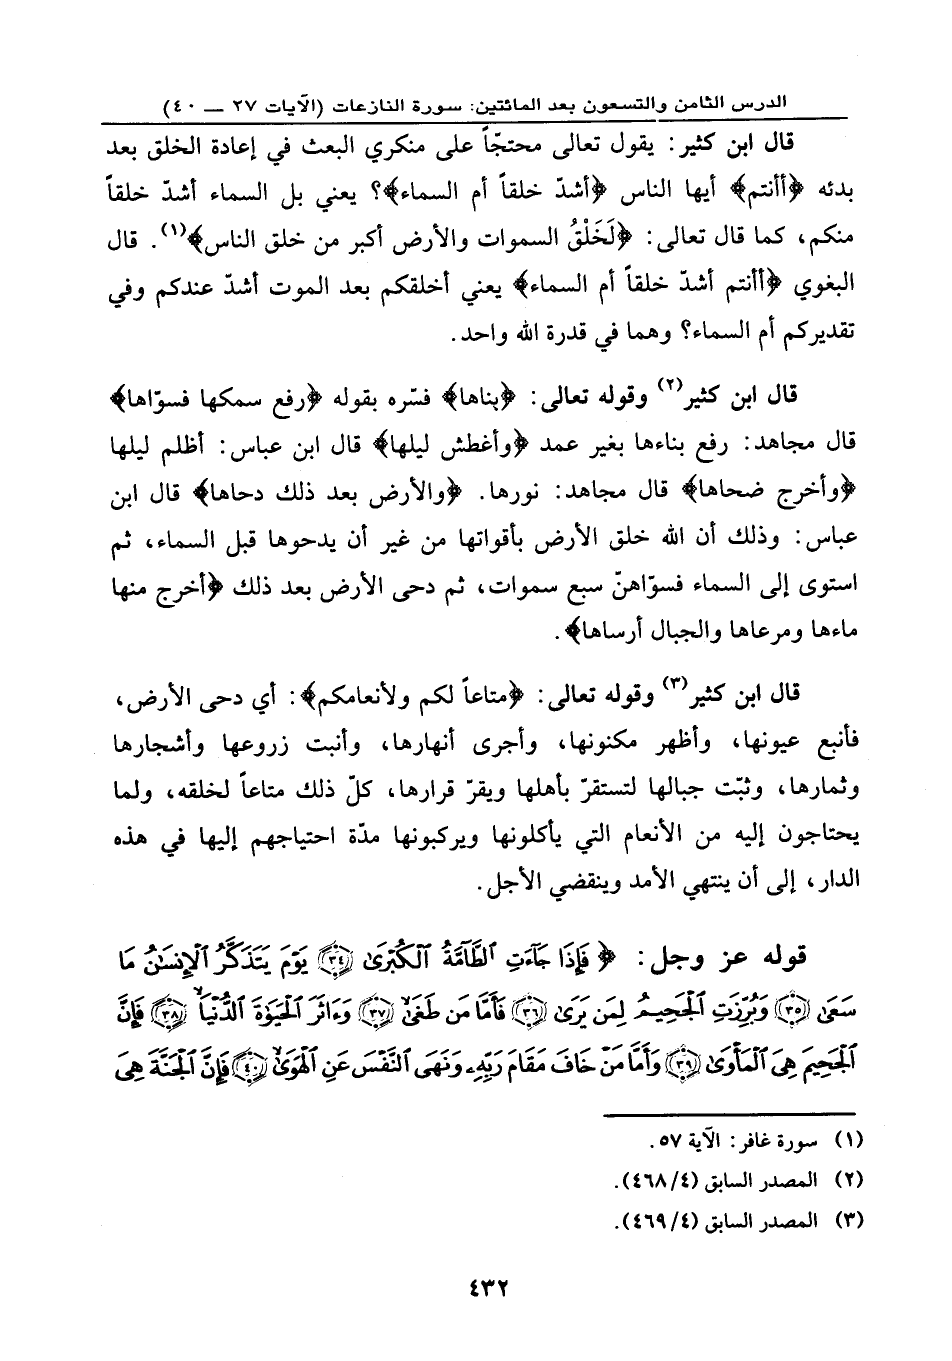 الدرس الثامن والتسعون بعد المائتين: سورة النازعات (الآيات ٢٧ ــ ٤٠)
قال ابن كثير: يقول تعالى محتجّاً على منكري البعث في إعادة الخلق بعد
بدئه ﴿أأنتم﴾ أيها الناس ﴿أشدّ خلقاً أم السماء﴾؟ يعني بل السماء أشدّ خلقاً
منكم، كما قال تعالى: ﴿لَخَلْقُ السموات والأرض أكبر من خلق الناس﴾(١). قال
البغوي ﴿أأنتم أشدّ خلقاً أم السماء﴾ يعني أخلقكم بعد الموت أشدّ عندكم وفي
تقديركم أم السماء؟ وهما في قدرة الله واحد.
قال ابن كثير(٢) وقوله تعالى: ﴿بناها﴾ فسّره بقوله ﴿رفع سمكها فسوّاها﴾
قال مجاهد: رفع بناءها بغير عمد ﴿وأغطش ليلها﴾ قال ابن عباس: أظلم ليلها
﴿وأخرج ضحاها﴾ قال مجاهد: نورها. ﴿والأرض بعد ذلك دحاها﴾ قال ابن
عباس: وذلك أن الله خلق الأرض بأقواتها من غير أن يدحوها قبل السماء، ثم
استوى إلى السماء فسوّاهنّ سبع سموات، ثم دحى الأرض بعد ذلك ﴿أخرج منها
ماءها ومرعاها والجبال أرساها﴾.
قال ابن كثير(٣) وقوله تعالى: ﴿متاعاً لكم ولأنعامكم﴾: أي دحى الأرض،
فأنبع عيونها، وأظهر مكنونها، وأجرى أنهارها، وأنبت زروعها وأشجارها
وثمارها، وثبّت جبالها لتستقرّ بأهلها ويقرّ قرارها، كلّ ذلك متاعاً لخلقه، ولما
يحتاجون إليه من الأنعام التي يأكلونها ويركبونها مدّة احتياجهم إليها في هذه
الدار، إلى أن ينتهي الأمد وينقضي الأجل.
قوله عز وجل: ﴿ فَإِذَا جَآءَتِ ٱلطَّآمَّةُ ٱلْكُبْرَىٰ ٣٤ يَوْمَ يَتَذَكَّرُ ٱلْإِنسَٰنُ مَا
سَعَىٰ ٣٥ وَبُرِّزَتِ ٱلْجَحِيمُ لِمَن يَرَىٰ ٣٦ فَأَمَّا مَن طَغَىٰ ٣٧ وَءَاثَرَ ٱلْحَيَوٰةَ ٱلدُّنْيَا ٣٨ فَإِنَّ
ٱلْجَحِيمَ هِىَ ٱلْمَأْوَىٰ ٣٩ وَأَمَّا مَنْ خَافَ مَقَامَ رَبِّهِۦ وَنَهَى ٱلنَّفْسَ عَنِ ٱلْهَوَىٰ ٤٠ فَإِنَّ ٱلْجَنَّةَ هِىَ
(١) سورة غافر: الآية ٥٧.
(٢) المصدر السابق (٤/٤٦٨).
(٣) المصدر السابق (٤/٤٦٩).
٤٣٢